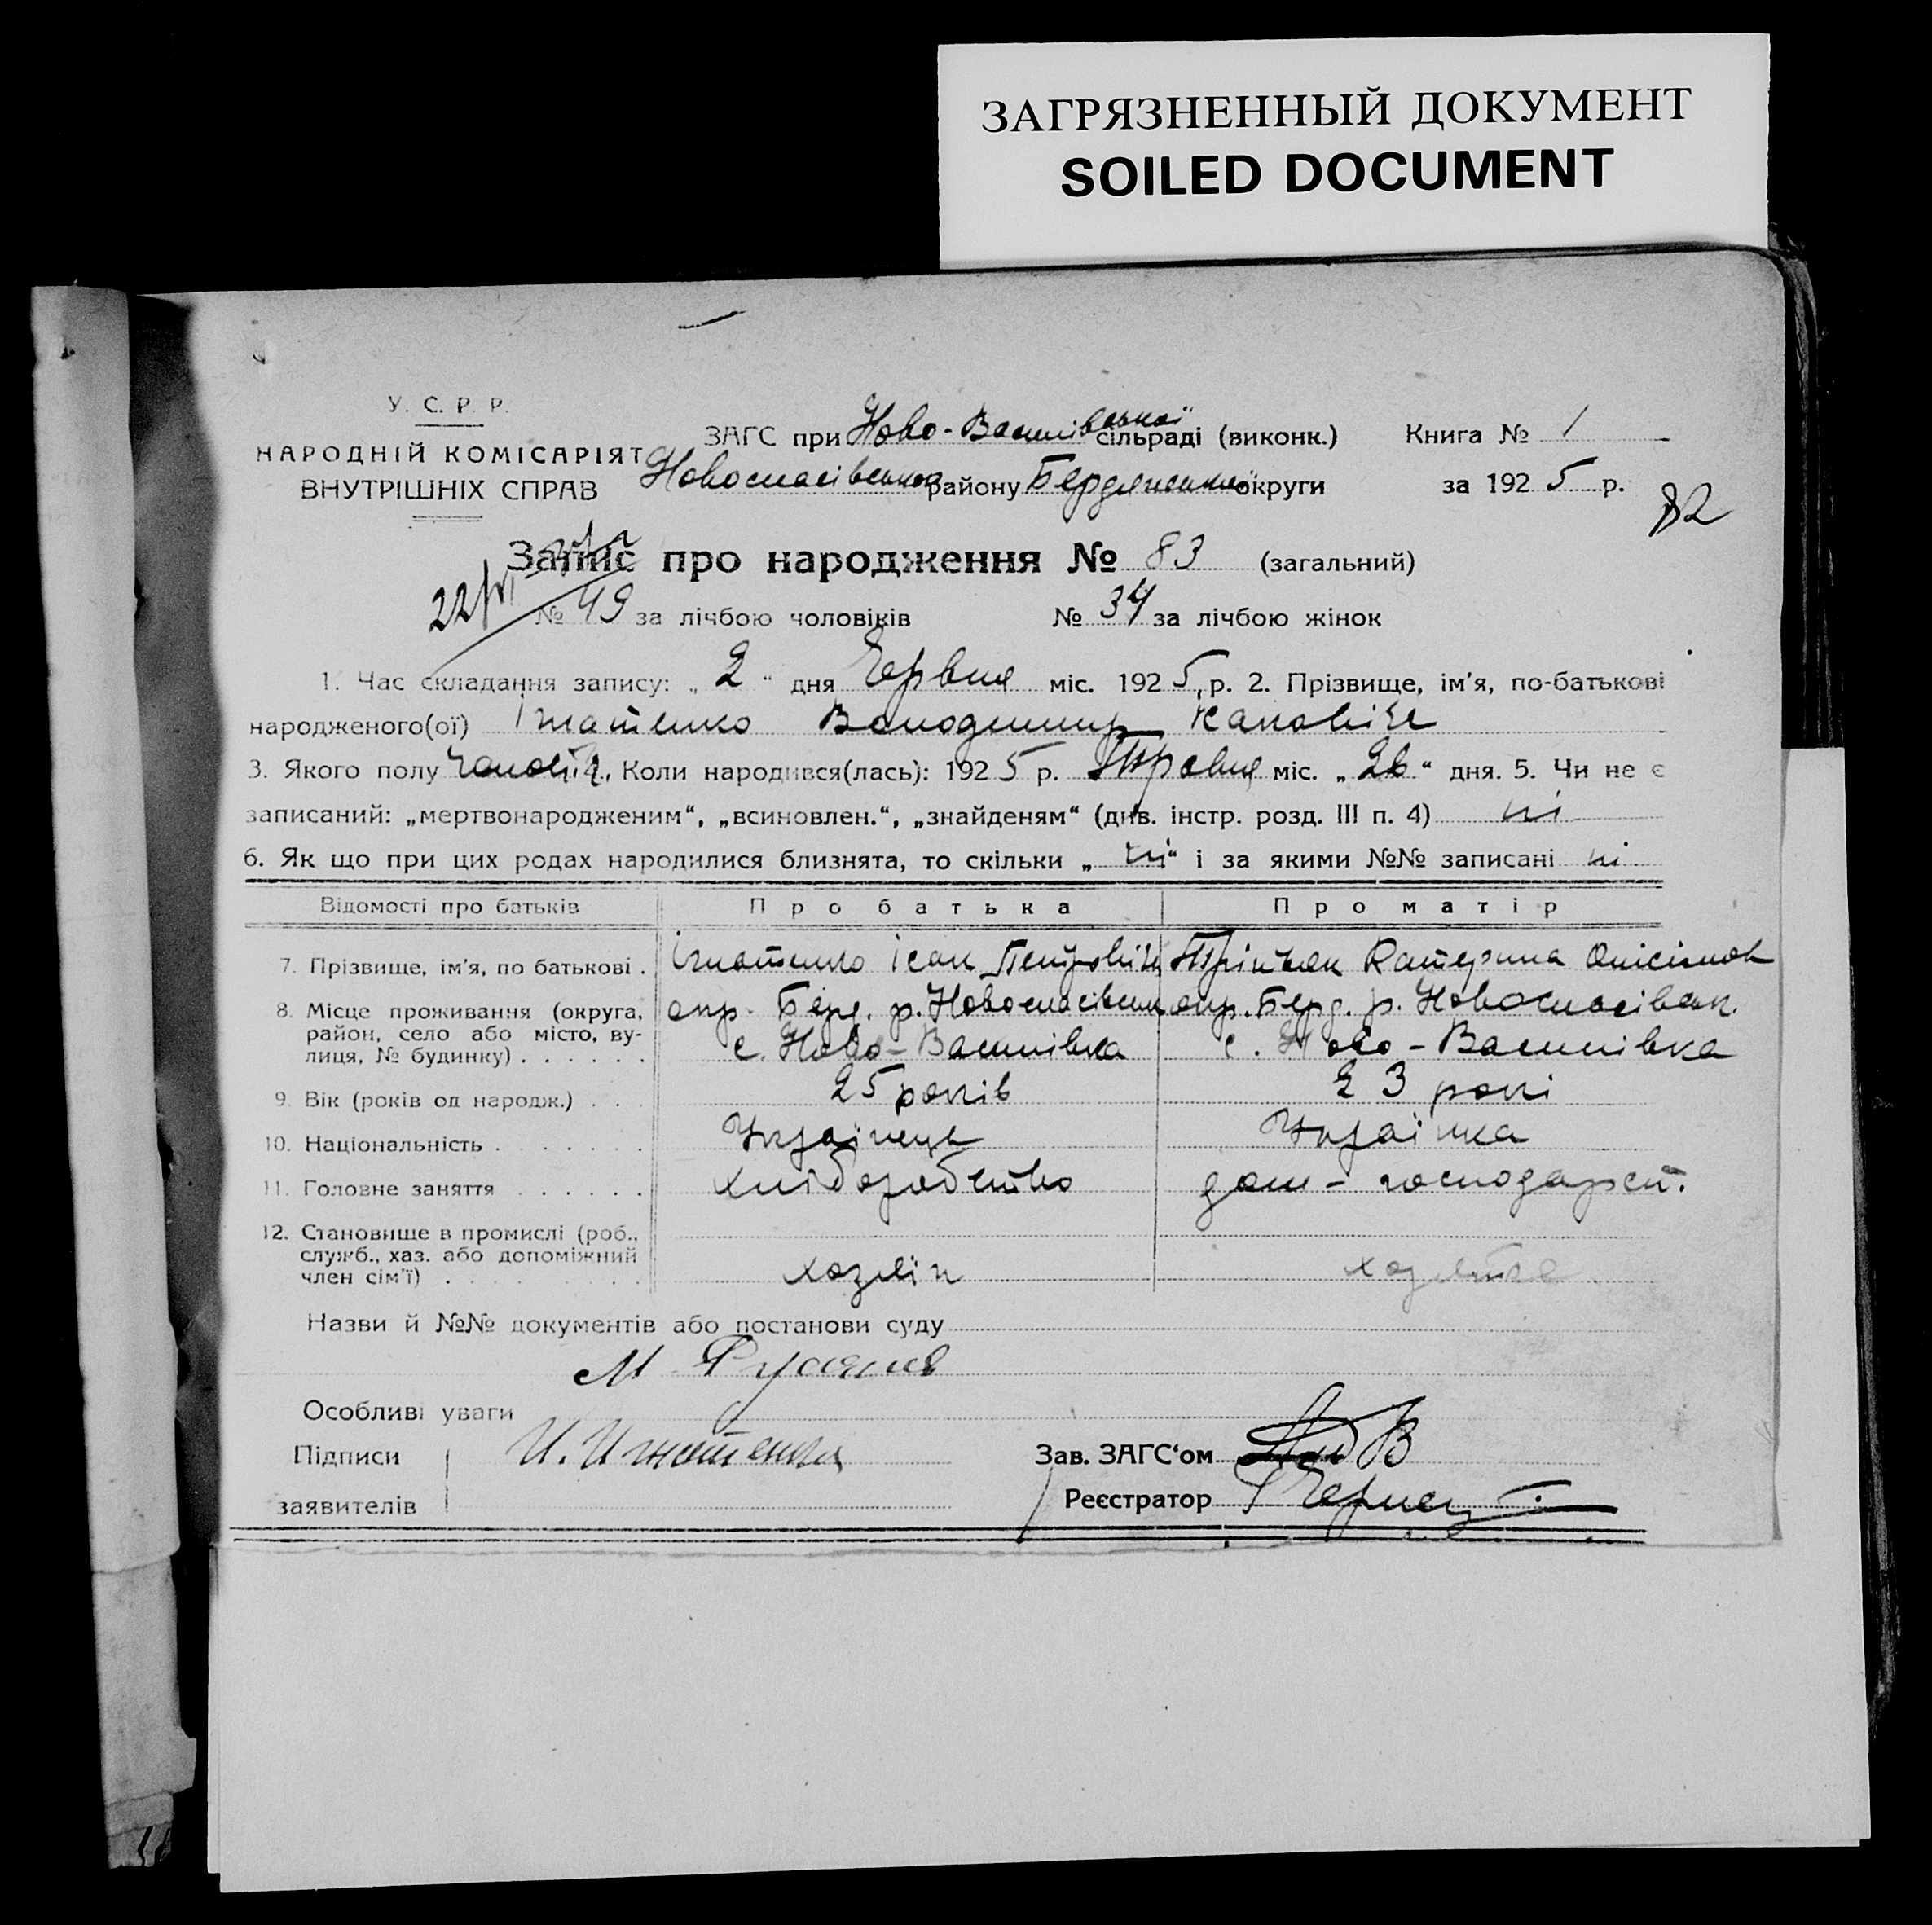 ЗАГРЯЗНЕННЫЙ ДОКУМЕНТ
SOILED DOCUMENT
У. С. Р. Р.
НАРОДНІЙ КОМІСАРІЯТ
ВНУТРІШНІХ СПРАВ
ЗАГС при Ново-Василівської сільраді (виконк.) Книга № 1
Новоспасівського району Бердянської округи за 1925 р.
82
Запис про народження № 83 (загальний)
№ 49 за лічбою чоловіків № 34 за лічбою жінок
1. Час складання запису: „ 2 “ дня Червня міс. 1925 р. 2. Прізвище, ім'я, по-батькові
народженого(ої) Ігнатенко Володимир
3. Якого полу чолов. 4. Коли народився(лась): 1925 р. Травня міс. „ 26 “ дня. 5. Чи не є
записаний: „мертвонародженим“, „всиновлен.“, „знайденям“ (див. інстр. розд. III п. 4) ні
6. Як що при цих родах народилися близнята, то скільки „ ні “ і за якими №№ записані ні
Відомості про батьків Про батька Про матір
7. Прізвище, ім'я, по батькові . Ігнатенко Ісак Петровіч Катерина Онісімов
8. Місце проживання (округа, район, село або місто, вулиця, № будинку) . . . . . . окр. Берд. р. Новоспасівськ окр. Берд. р. Новоспасівськ.
с. Ново-Василівка с. Ново-Василівка
9. Вік (років од народж.) . . 25 років 23 рокі
10. Національність . . . . . . . Українець Українка
11. Головне заняття . . . . . . хліборобство дом-господарст.
12. Становище в промислі (роб., служб., хаз. або допоміжний член сім'ї) . . . . . . . . . хазяін хазяйка
Назви й №№ документів або постанови суду
Особливі уваги
Підписи заявителів И. Игнатенко
Зав. ЗАГС'ом
Реєстратор Чернец